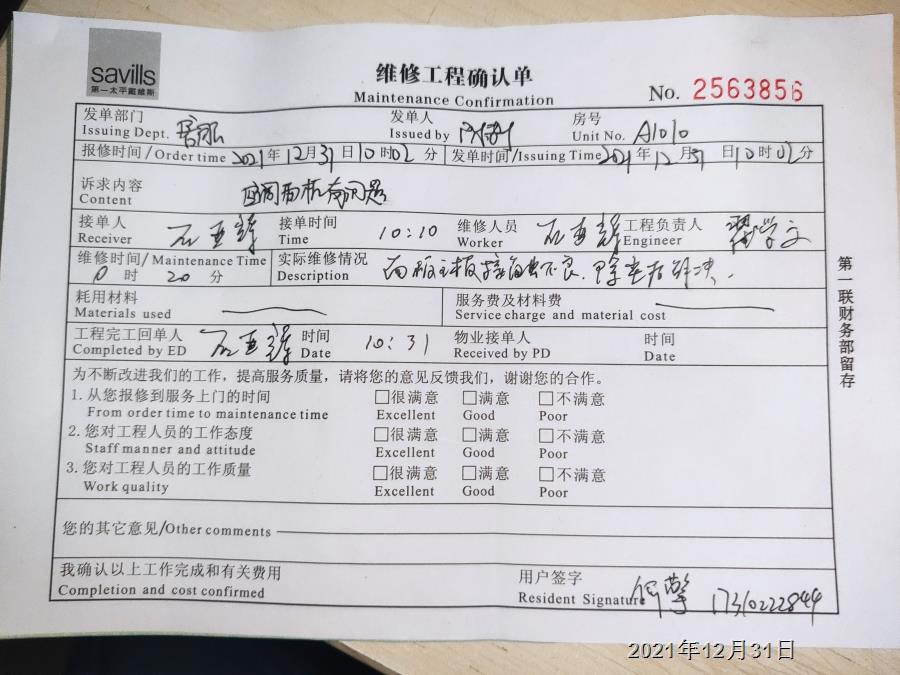 savills
第一太平戴维斯
维修工程确认单
Maintenance Confirmation
No. 2563856
发单部门 发单人 房号
Issuing Dept. 客服 Issued by Unit No. A1010
报修时间/Order time 2021年12月31日10时02分 发单时间/Issuing Time 2021年12月31日10时02分
诉求内容
Content 空调面板有问题
接单人 石亚辉 接单时间 10:10 维修人员 石亚辉 工程负责人
Receiver Time Worker Engineer
维修时间/Maintenance Time 实际维修情况
时20分 Description 面板主板接触不良.
耗用材料 服务费及材料费
Materials used Service charge and material cost
工程完工回单人 石亚辉 时间 10:31 物业接单人 时间
Completed by ED Date Received by PD Date
为不断改进我们的工作，提高服务质量，请将您的意见反馈我们，谢谢您的合作。
1.从您报修到服务上门的时间 □很满意 □满意 □不满意
From order time to maintenance time Excellent Good Poor
2.您对工程人员的工作态度 □很满意 □满意 □不满意
Staff manner and attitude Excellent Good Poor
3.您对工程人员的工作质量 □很满意 □满意 □不满意
Work quality Excellent Good Poor
您的其它意见/Other comments
我确认以上工作完成和有关费用 用户签字
Completion and cost confirmed Resident Signature 17310222844
第一联财务部留存
2021年12月31日